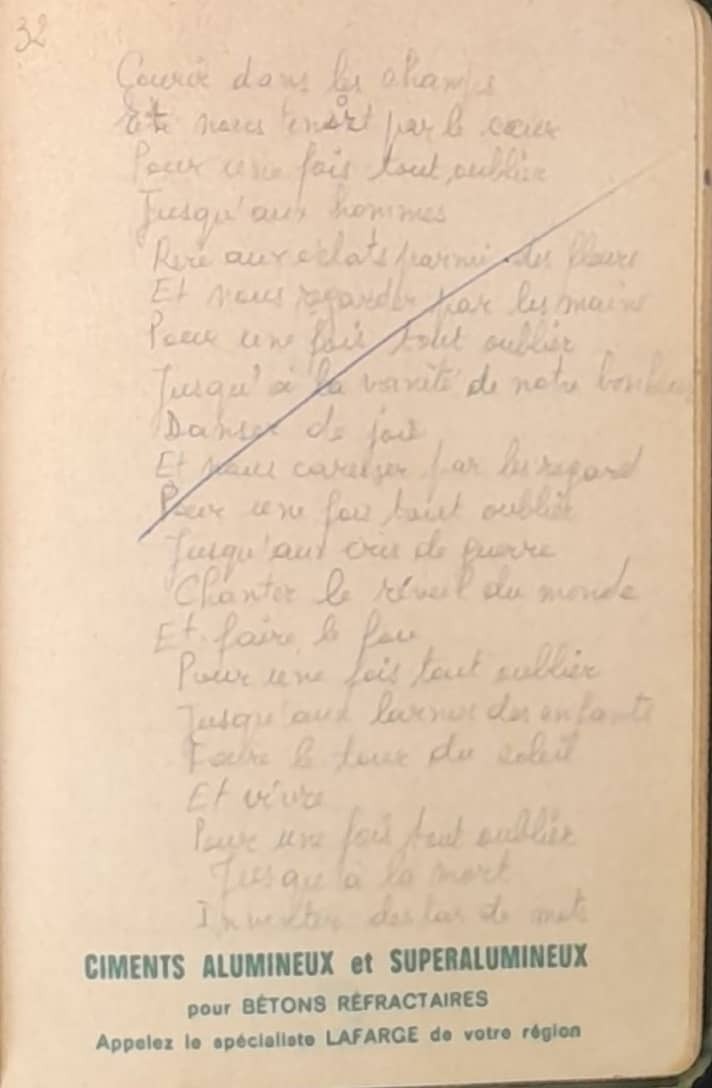 32
Courir dans les champs
Et nous par le cœur
Pour une fois tout oublier
Jusqu'aux hommes
Rire aux éclats parmi des fleurs
Et nous regarder par les mains
Pour une fois tout oublier
Jusqu'à la vanité de notre bonheur
Danser de joie
Et nous caresser par les regard
Pour une fois tout oublier
Jusqu'aux cris de guerre
Chanter le réveil du monde
Et faire le fou
Pour une fois tout oublier
Jusqu'aux larmes des enfants
Faire le tour du soleil
Et vivre
Pour une fois tout oublier
Jusqu'à la mort
Inventer des tas de mots
CIMENTS ALUMINEUX et SUPERALUMINEUX
pour BÉTONS RÉFRACTAIRES
Appelez le spécialiste LAFARGE de votre région